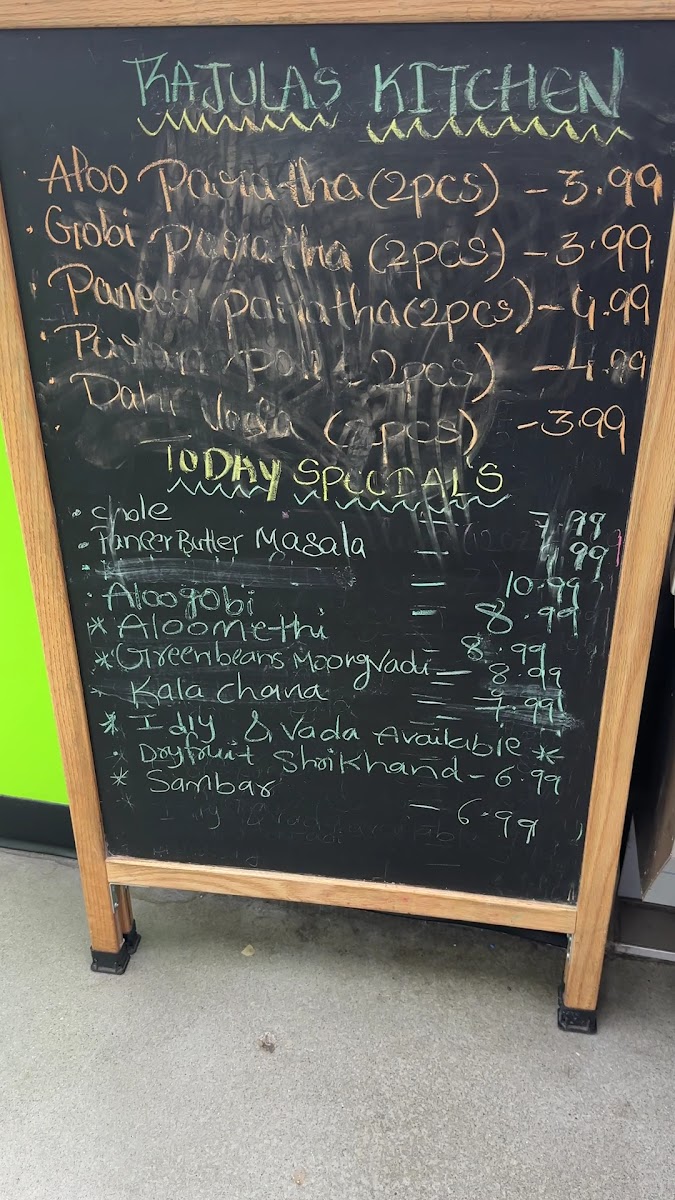 RAJULA'S KITCHEN
· Aloo Paratha (2pcs) - 3.99
· Gobi Paratha (2pcs) - 3.99
· Paneer Paratha (2pcs) - 4.99
· (2pcs) - 4.99
· Dahi Vada (2pcs) - 3.99
TODAY SPECIAL'S
· Chole = 7.99
· Paneer Butter Masala - 9.99
= 10.99
· Aloogobi - 8.99
* Aloomethi - 8.99
* Greenbeans Moongvadi - 8.99
Kala chana = 7.99
* Idly & Vada Available *
· Dryfruit Shrikhand - 6.99
* Sambar - 6.99